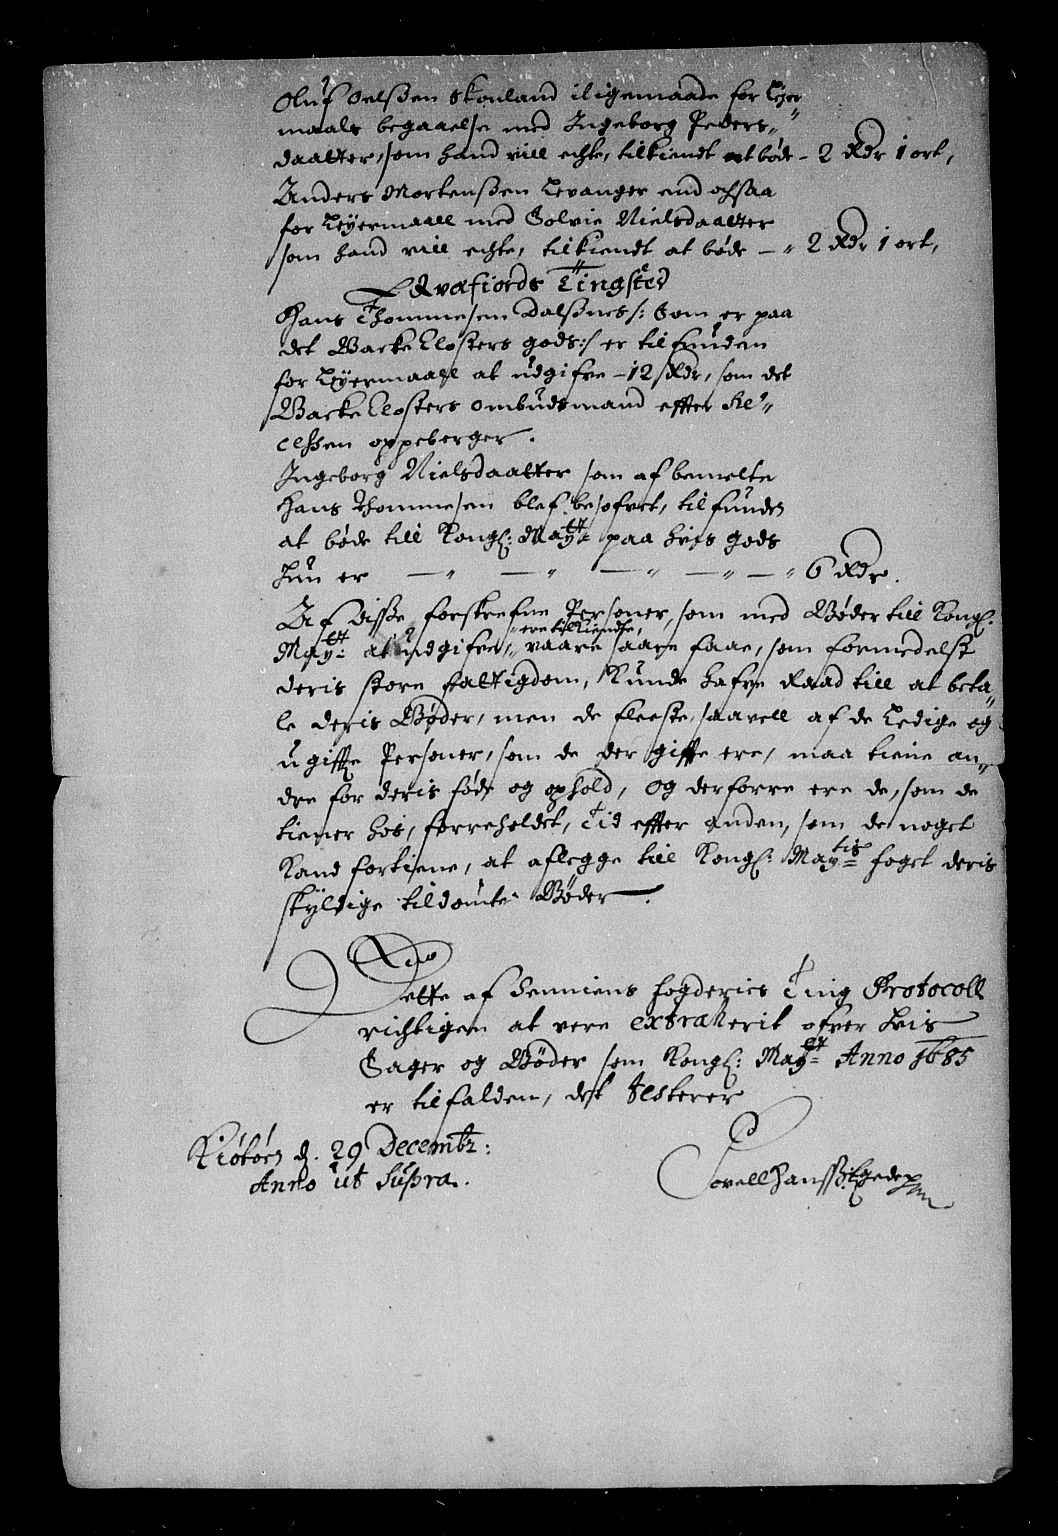 Oluf Oelßen Skonland iligemaade for Leyer
maals begaaelse med Ingeborg Peders,,
daatter, som hand vill echte, tilkiendt at bøde - 2 Rdr 1 ort,
Anders Mortenßen Levanger end ochsaa
for Leyermaall med Solvie Nielsdaatter
som hand vill echte, tilkiendt at bøde - ,, 2 Rdr 1 ort,
Qvæfiords Tingsted
Hans Thommesen Dalßnes /: Som er paa
det Backe Closters gods :/ er tilfunden
for Leyermaall at udgifve - 12 Rdr, som det
Backe Closters Ombudsmand effter Re,,
cessen oppeberger.
Ingeborg Nielsdaatter som af bemelte
Hans Thommesen blef besofvet, tilfunden
at bøde till Kongl: Maytt: paa hvis gods
hun er - ,, - ,, - ,, - ,, - ,, 6 Rdr.
Af disse forskrefne Personer, som med Bøder till Kongl:
Maytt: at udgifve, ,, ere tilkiendte, vaare saare faae, som formedelst
deris store fattigdom, Kunde hafve Raad till at beta,,
le deris Bøder, men de fleeste, saavell af de Ledige og
ugiffte Personer, som de der giffte ere, maa tiene an,,
dre for deris føde og ophold, og derforre ere de, som de
tiener hos, forreholdet, Tid effter anden, som de noget
Kand fortiene, at aflegge till Kongl: Maytis foget deris
skyldige tildømte Bøder.
Dette af Senniens fogderies Ting Protocoll
richtigen at vere extraherit ofver hvis
Sager og Bøder som Kongl: Maytt: Anno 1685
er tilfalden, det Testerer
Kiøbøen d. 29 Decembr:
Anno ut Supra.
Povell Hansß: Egede